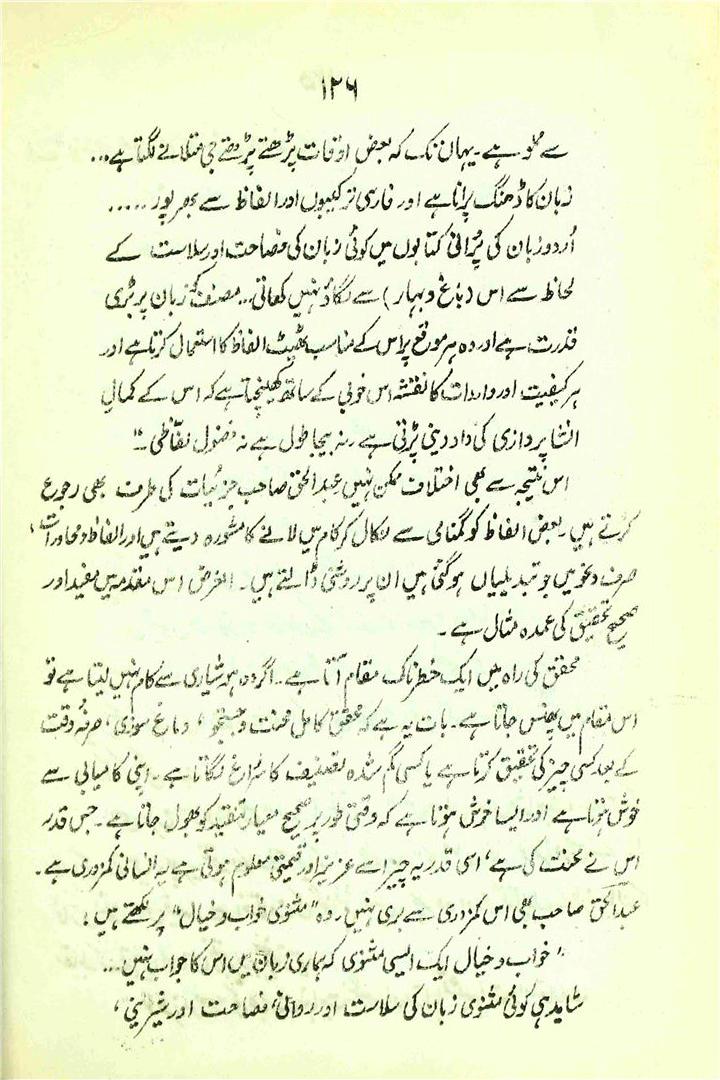 ۱۲۶
سے مملو ہے۔ یہاں تک کہ بعض اوقات پڑھتے پڑھتے جی متلانے لگتا ہے...
زبان کا ڈھنگ پرانا ہے اور فارسی ترکیبوں اور الفاظ سے بھرپور .....
اُردو زبان کی پُرانی کتابوں میں کوئی زبان کی فصاحت اور سلاست کے
لحاظ سے اس (باغ و بہار) سے لگّا نہیں کھاتی.. مصنف کو زبان پر بڑی
قدرت ہے اور وہ ہر موقع پر اس کے مناسب ٹھیٹ الفاظ کا استعمال کرتا ہے اور
ہر کیفیت اور واردات کا نقشہ اس خوبی کے ساتھ کھینچتا ہے کہ اس کے کمالِ
انشا پردازی کی داد دینی پڑتی ہے، نہ بیجا طول ہے نہ فضول لفّاظی۔"
اس نتیجہ سے بھی اختلاف ممکن نہیں عبدالحق صاحب جزئیات کی طرف بھی رجوع
کرتے ہیں۔ بعض الفاظ کو گمنامی سے نکال کر کام میں لانے کا مشورہ دیتے ہیں اور الفاظ و محاورات،
صرف و نحو میں جو تبدیلیاں ہو گئی ہیں ان پر روشنی ڈالتے ہیں۔ الغرض اس مقدمہ میں مفید اور
صحیح تحقیق کی عمدہ مثال ہے۔
محقق کی راہ میں ایک خطرناک مقام آتا ہے۔ اگر وہ ہوشیاری سے کام نہیں لیتا ہے تو
اس مقام میں پھنس جاتا ہے۔ بات یہ ہے کہ محقق کامل محنت و جستجو، دماغ سوزی، صرفِ وقت
کے بعد کسی چیز کی تحقیق کرتا ہے یا کسی گم شدہ تصنیف کا سُراغ لگاتا ہے۔ اپنی کامیابی سے
خوش ہوتا ہے اور ایسا خوش ہوتا ہے کہ وقتی طور پر صحیح معیارِ تنقید کو بھول جاتا ہے۔ جس قدر
اس نے محنت کی ہے، اسی قدر یہ چیز اسے عزیز اور قیمتی معلوم ہوتی ہے یہ انسانی کمزوری ہے۔
عبدالحق صاحب بھی اس کمزوری سے بری نہیں۔ وہ "مثنوی خواب و خیال" پر لکھتے ہیں:
"خواب و خیال ایک ایسی مثنوی کہ ہماری زبان میں اس کا جواب نہیں...
شاید ہی کوئی مثنوی زبان کی سلاست اور روانی، فصاحت اور شیرینی،